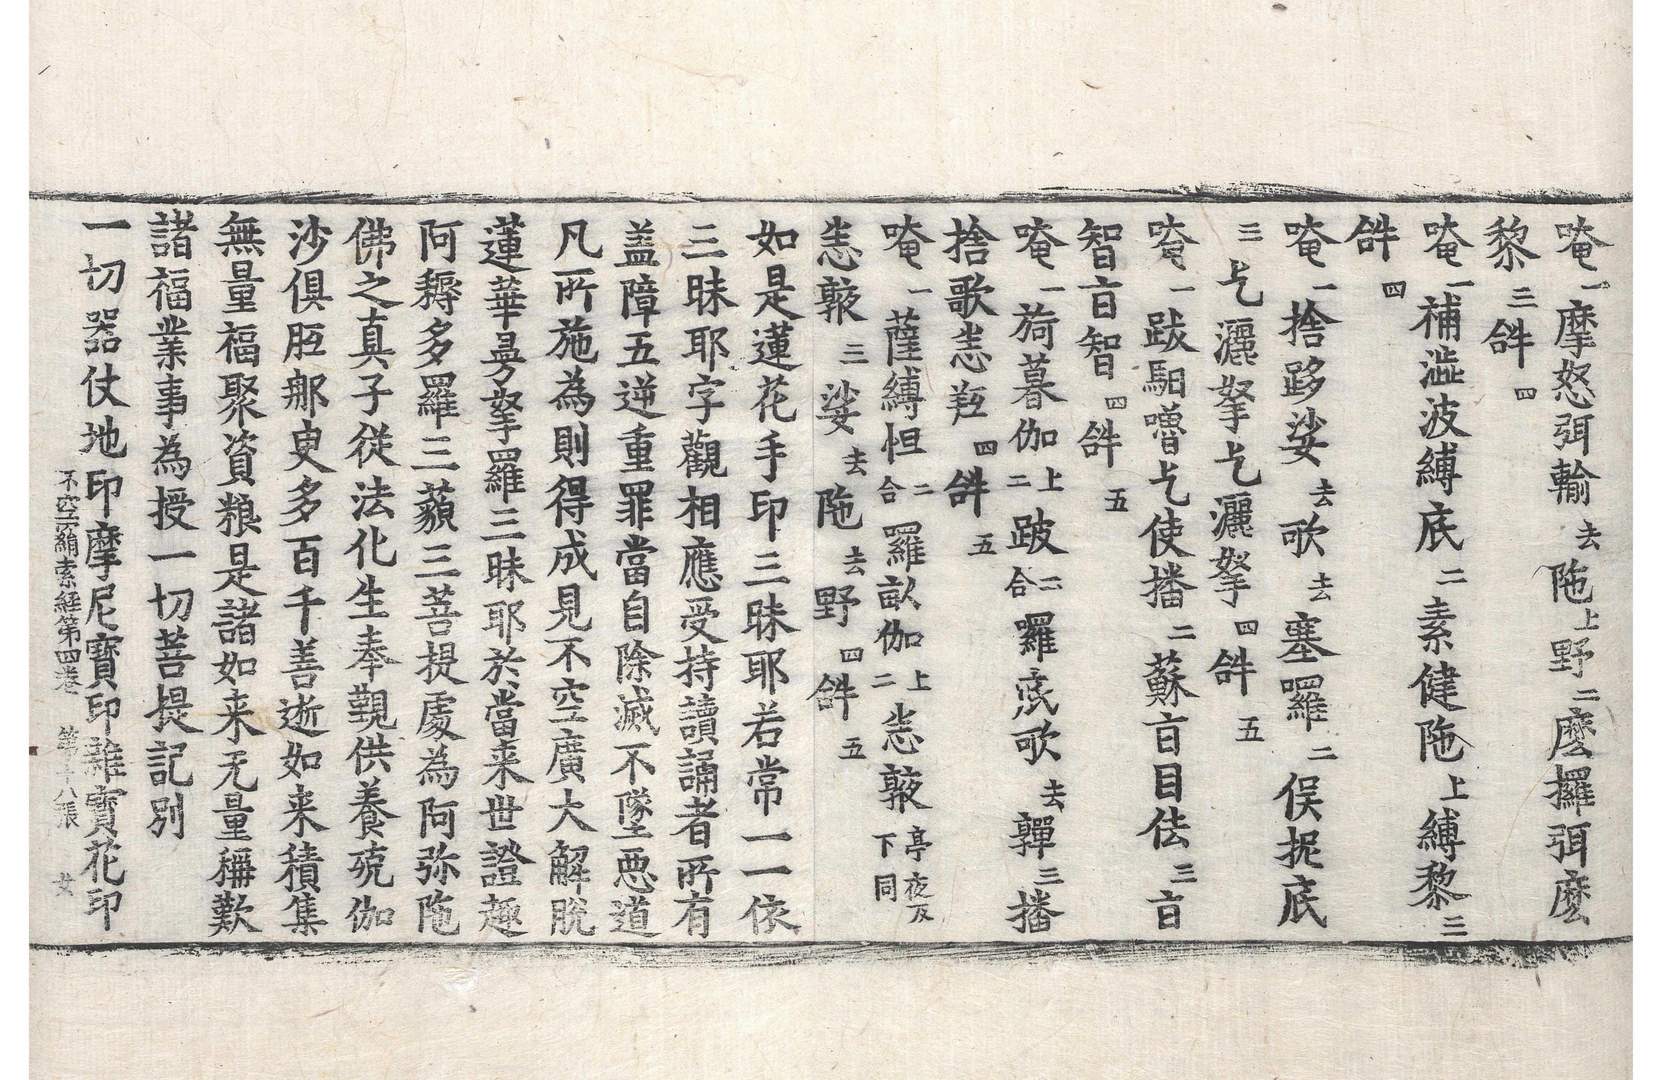 唵一摩怒弭輸去陁上野二麽攞弭麽
黎三𤙖四
唵一補澁波縛底二素健陁上縛黎三
𤙖四
唵一捨跢娑去歌去塞囉二俁抳底
三乞灑拏乞灑拏四𤙖五
唵一跋馹嚕乞使播二蘇㫖目佉三㫖
智㫖智四𤙖五
唵一旖暮伽上二跛二合囉底歌去亸三播
捨歌恙羟四𤙖五
唵一薩縛怛二合羅畝伽上二恙皷亭夜反下同
恙皷三娑去陁去野四𤙖五
如是蓮花手印三昧耶若常一一依
三昧耶字觀相應受持讀誦者所有
盖障五逆重罪當自除滅不墜惡道
凡所施為則得成見不空廣大解脫
蓮華㬅拏羅三昧耶於當来世證趣
阿耨多羅三藐三菩提處為阿弥陁
佛之真子從法化生奉覲供養殑伽
沙俱胝那庾多百千善逝如来積集
無量福聚資粮是諸如来无量稱歎
諸福業事為授一切菩提記別
一切器仗地印摩尼寶印雜寶花印
不空羂索經第四卷 第十八張 女